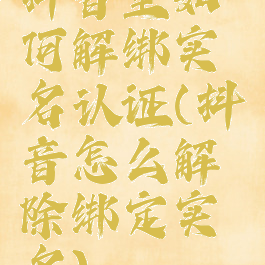 抖音里如
何解绑实
名认证(抖
音怎么解
除绑定实
名)